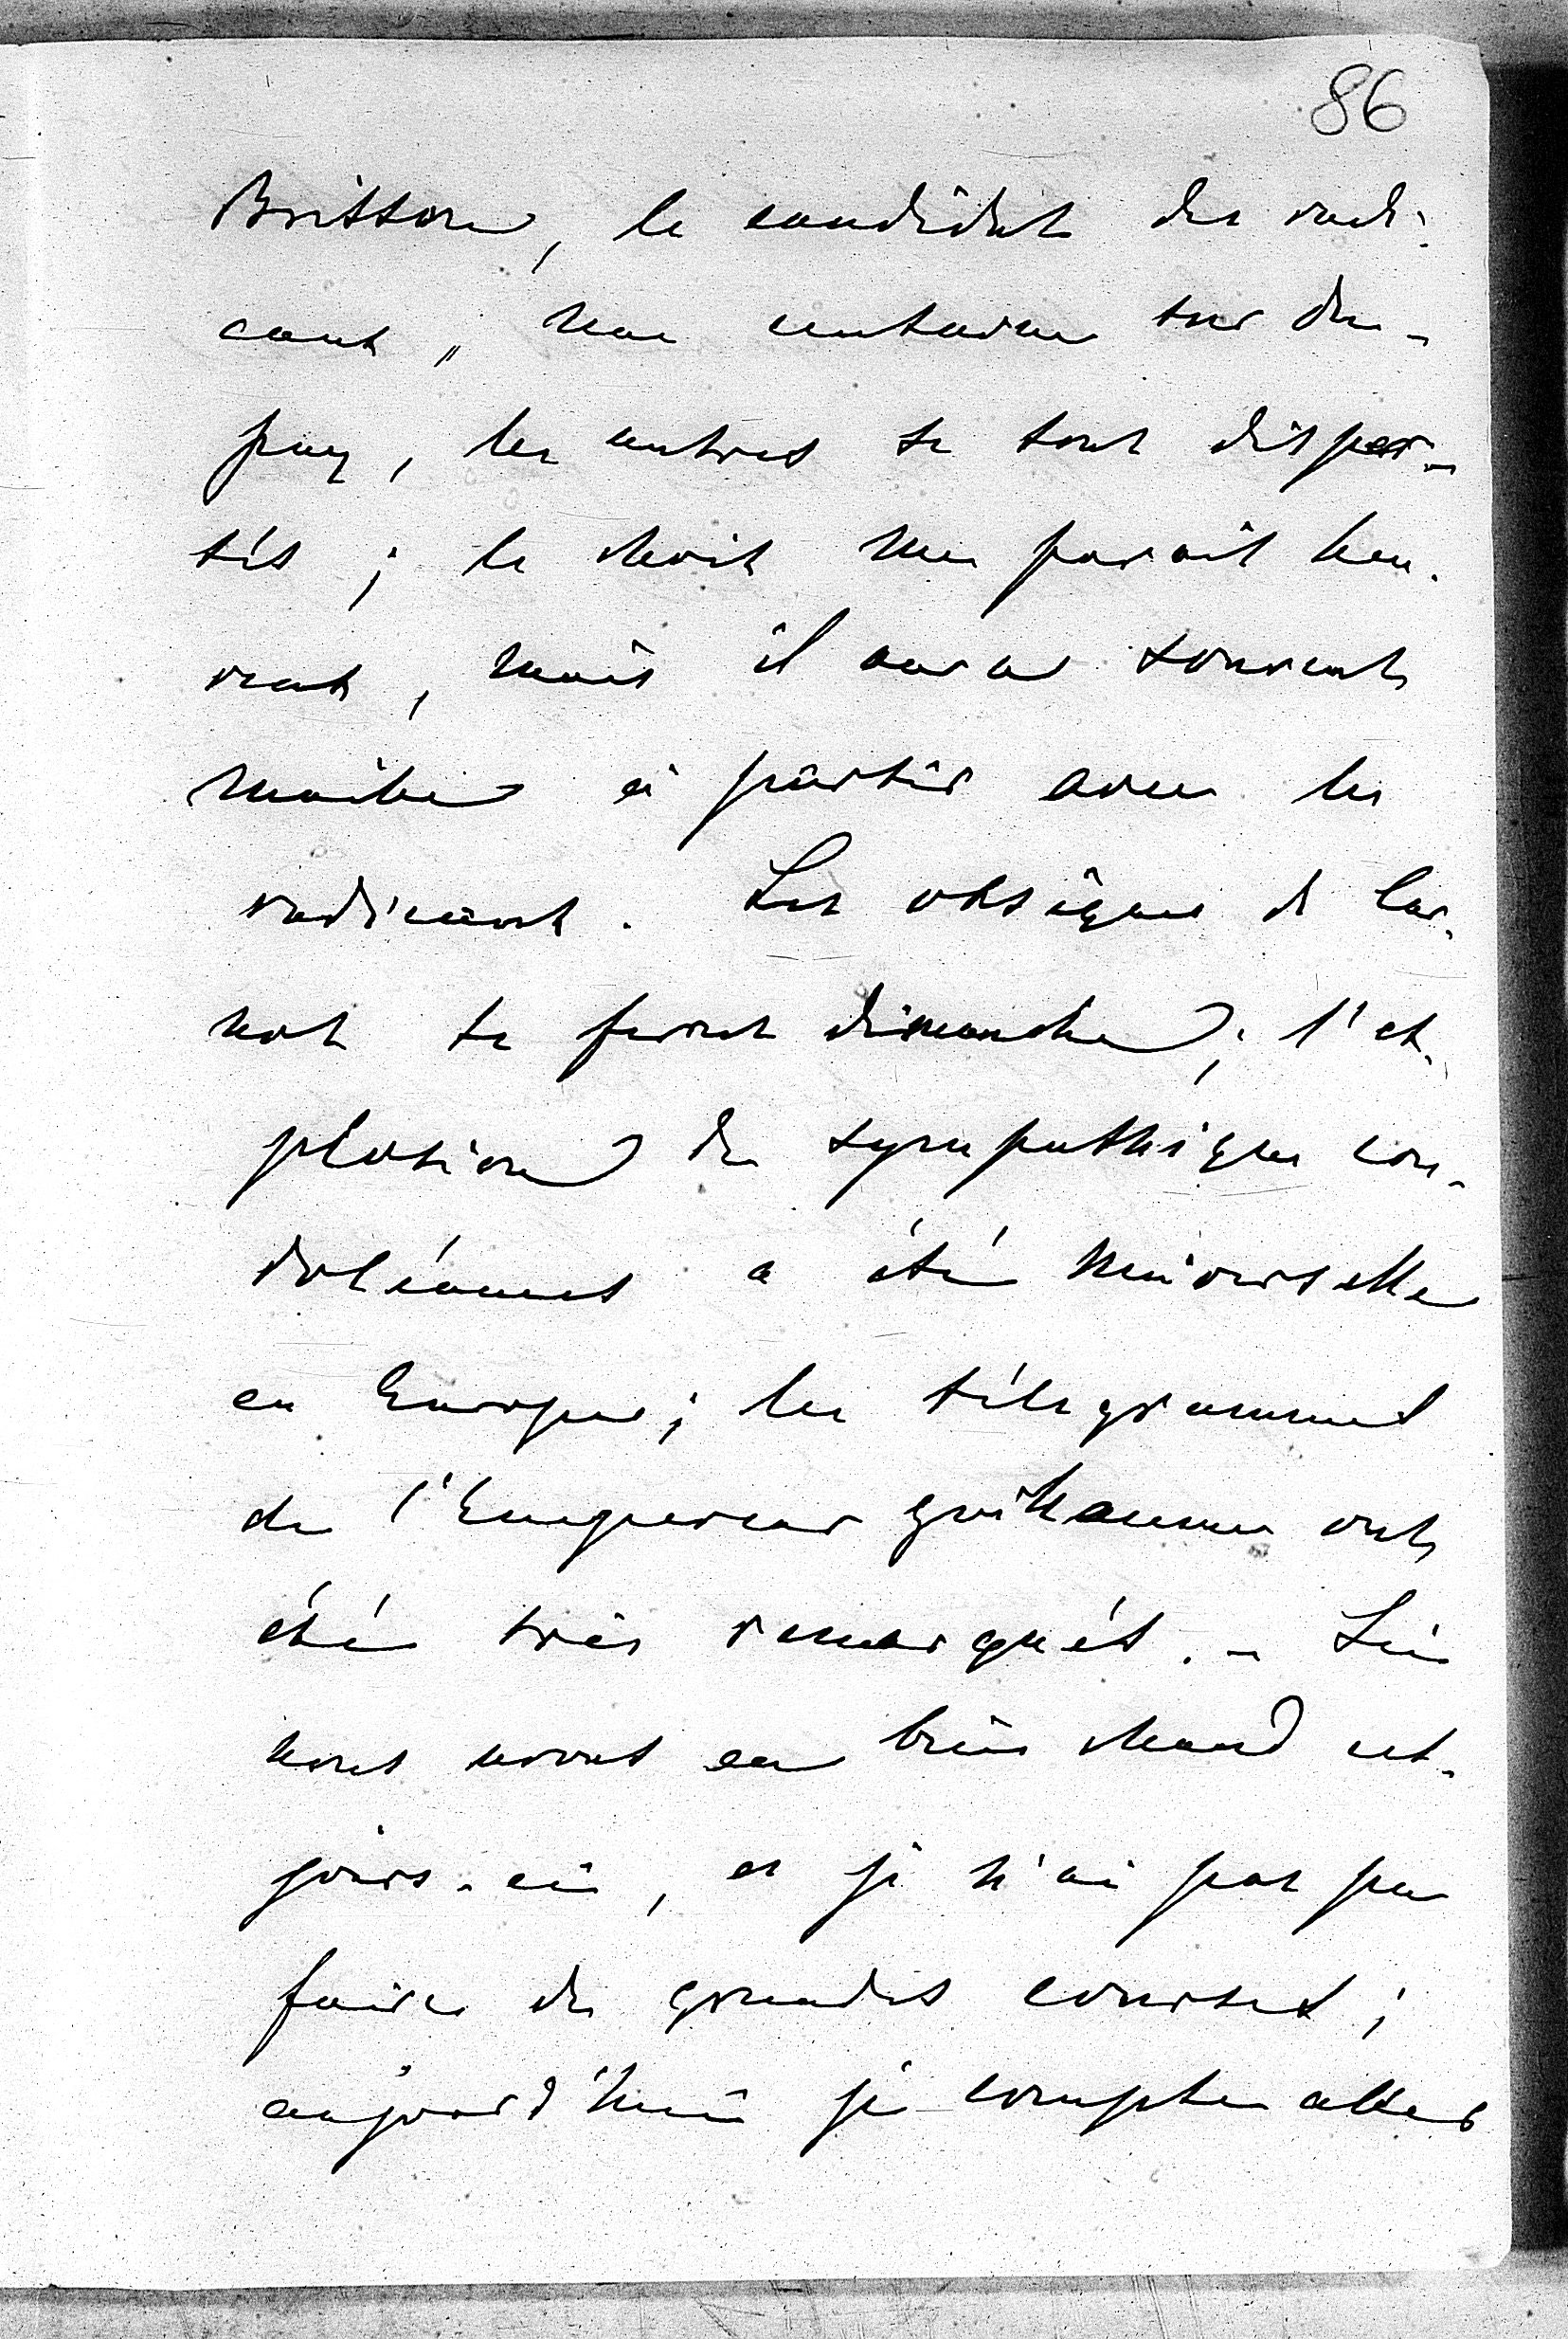 86
Brisson, le candidat des radi-
caux, une centaine sur Du-
puy, les autres se sont disper-
sés ; le choix me paraît heu-
reux, mais il aura souvent
maille à partir avec les
radicaux. Les obsèques de Car-
not se feront dimanche ; l'ex-
plosion de sympathiques con-
doléances a été universelle
en Europe ; les télégrammes
de l'Empereur Guillaume ont
été très remarqués. - Ici
nous avons eu bien chaud ces-
jours-ci, et je n'ai pas pu
faire de grandes courses ;
aujourd'hui je compte aller